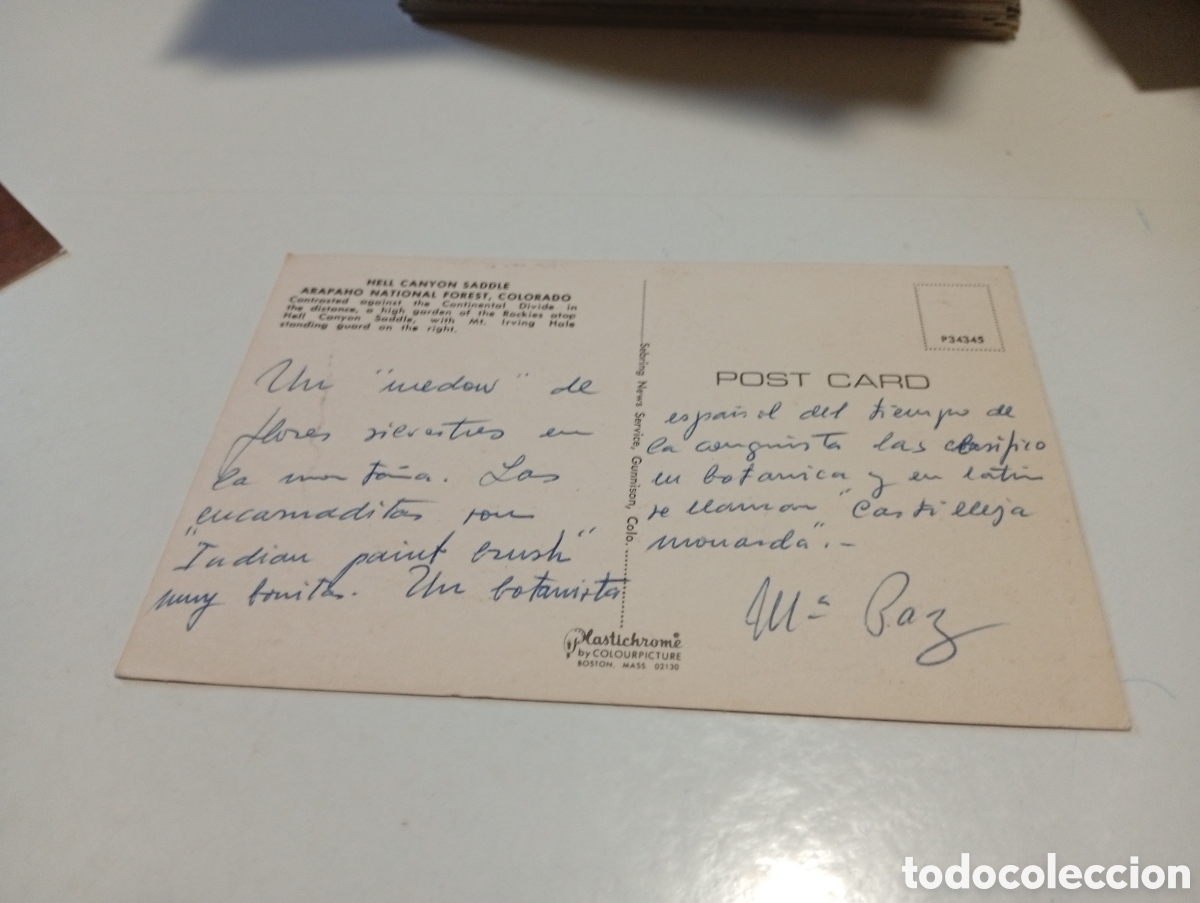 HELL CANYON SADDLE
ARAPAHO NATIONAL FOREST, COLORADO
Contrasted against the Continental Divide in
the distance, a high garden of the Rockies atop
Hell Canyon Saddle, with Mt. Irving Hale
standing guard on the right.
Un "medow" de
flores silvestres en
la montaña. Las
"encarnaditas son
Indian paint brush"
muy bonitas. Un botanista
Sebring News Service, Gunnison, Colo.
Plastichrome
by COLOURPICTURE
BOSTON, MASS 02130
P34345
POST CARD
español del tiempo de
la conquista las clasifico
en botanica y en latin
se llaman "Castilleja
monarda".-
Mª Paz
todocoleccion